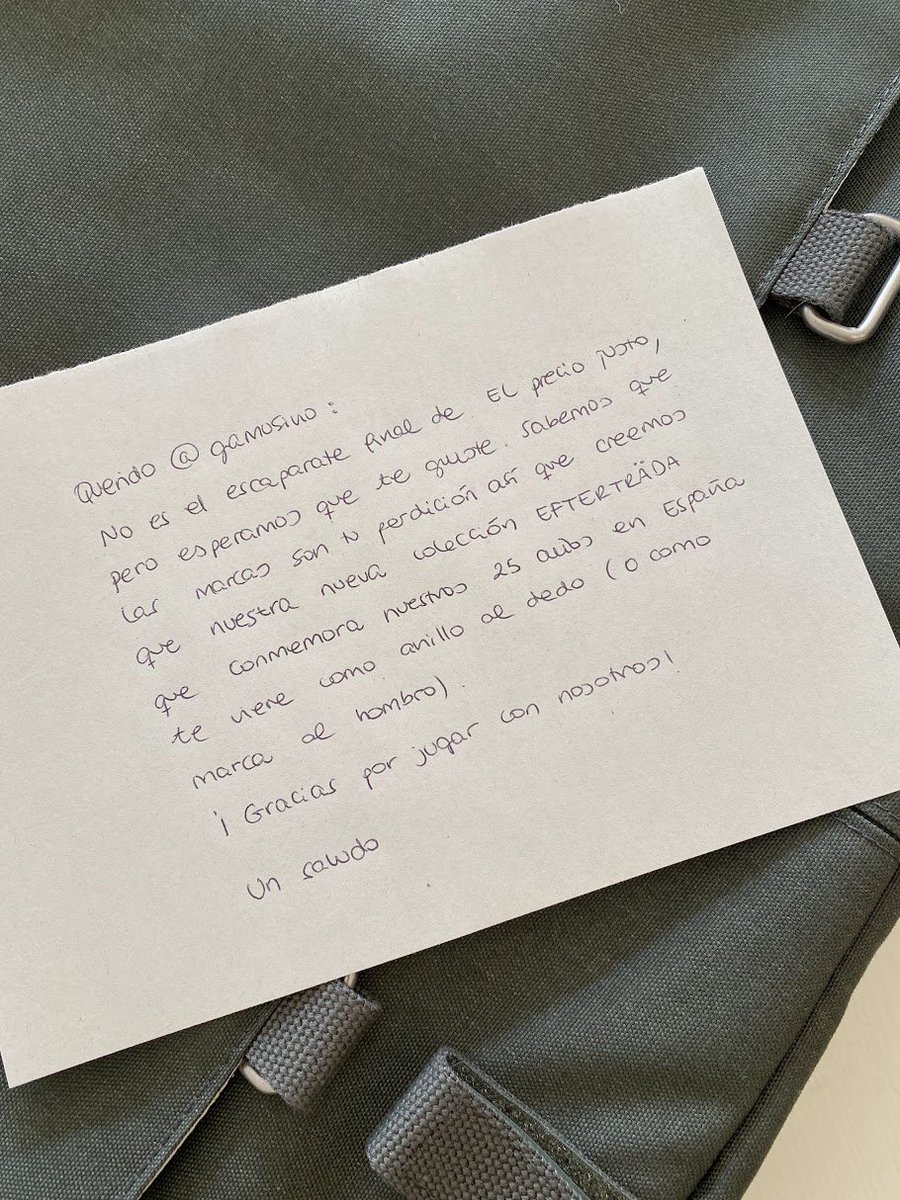 Querido @gamusino:
No es el escaparate final de El precio justo,
pero esperamos que te guste. Sabemos que
las marcas son tu perdición así que creemos
que nuestra nueva colección EFTERTRÄDA
que conmemora nuestros 25 años en España
te viene como anillo al dedo (o como
marca al hombro).
¡Gracias por jugar con nosotros!
Un saludo